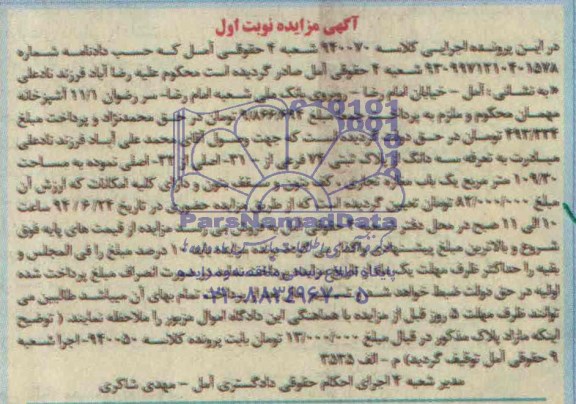 آگهی مزایده نوبت اول
در این پرونده اجرایی کلاسه ۹۴۰۰۷۰ شعبه ۴ حقوقی آمل که حسب دادنامه شماره
۹۳۰۹۹۷۱۲۱۰۴۰۱۵۷۸ شعبه ۴ حقوقی آمل صادر گردیده است محکوم علیه رضا آباد فرزند نادعلی
به نشانی: آمل - خیابان امام رضا - روبروی بانک ملی شعبه امام رضا، سر رضوان ۱۱/۱ آشپزخانه
مهمان محکوم و ملزم به پرداخت مبلغ ۹/۸۶۶/۶۹۴ تومان در حق محمدنژاد و پرداخت مبلغ
۴۹۳/۳۳۴ تومان در حق دولت گردیده است. که جهت وصول آقای محمد علی آباد فرزند نادعلی
مبادرت به تعرفه سه دانگ از پلاک ثبتی ۷۴ فرعی از - ۳۱- اصلی از ۳۳- اصلی نموده به مساحت
۱۰۹/۳۰ متر مربع یک باب مغازه تجاری کف بتون و سقف بتون و دارای کلیه امکانات که ارزش آن
مبلغ ۸۲/۰۰۰/۰۰۰ تومان تعیین گردیده است که از طریق مزایده حضوری در تاریخ ۹۴/۶/۲۴ ساعت
۱۰ الی ۱۱ صبح در محل دفتر شعبه ۴ حقوقی آمل به فروش می رسد. مزایده از قیمت های پایه فوق
شروع و بالاترین مبلغ پیشنهادی واگذار می گردد برنده مزایده باید ۱۰ درصد مبلغ را فی المجلس و
بقیه را حداکثر ظرف مهلت یک ماه از تاریخ مزایده پرداخت نماید در صورت انصراف مبلغ پرداخت شده
اولیه در حق دولت ضبط خواهد شد تمام بهای آن میباشد طالبین می
توانند ظرف مهلت ۵ روز قبل از مزایده با هماهنگی این دادگاه اموال مزبور را ملاحظه نمایند. ( توضیح
اینکه مازاد پلاک مذکور در قبال مبلغ ۱۳/۰۰۰/۰۰۰ تومان بابت پرونده کلاسه ۹۴۰۰۵۰- اجرا شعبه
۹ حقوقی آمل توقیف گردید) م - الف ۳۵۳۵
مدیر شعبه ۴ اجرای احکام حقوقی دادگستری آمل - مهدی شاکری
ParsNamadData
۰۲۱-۸۸۳۴۹۶۷۰-۵